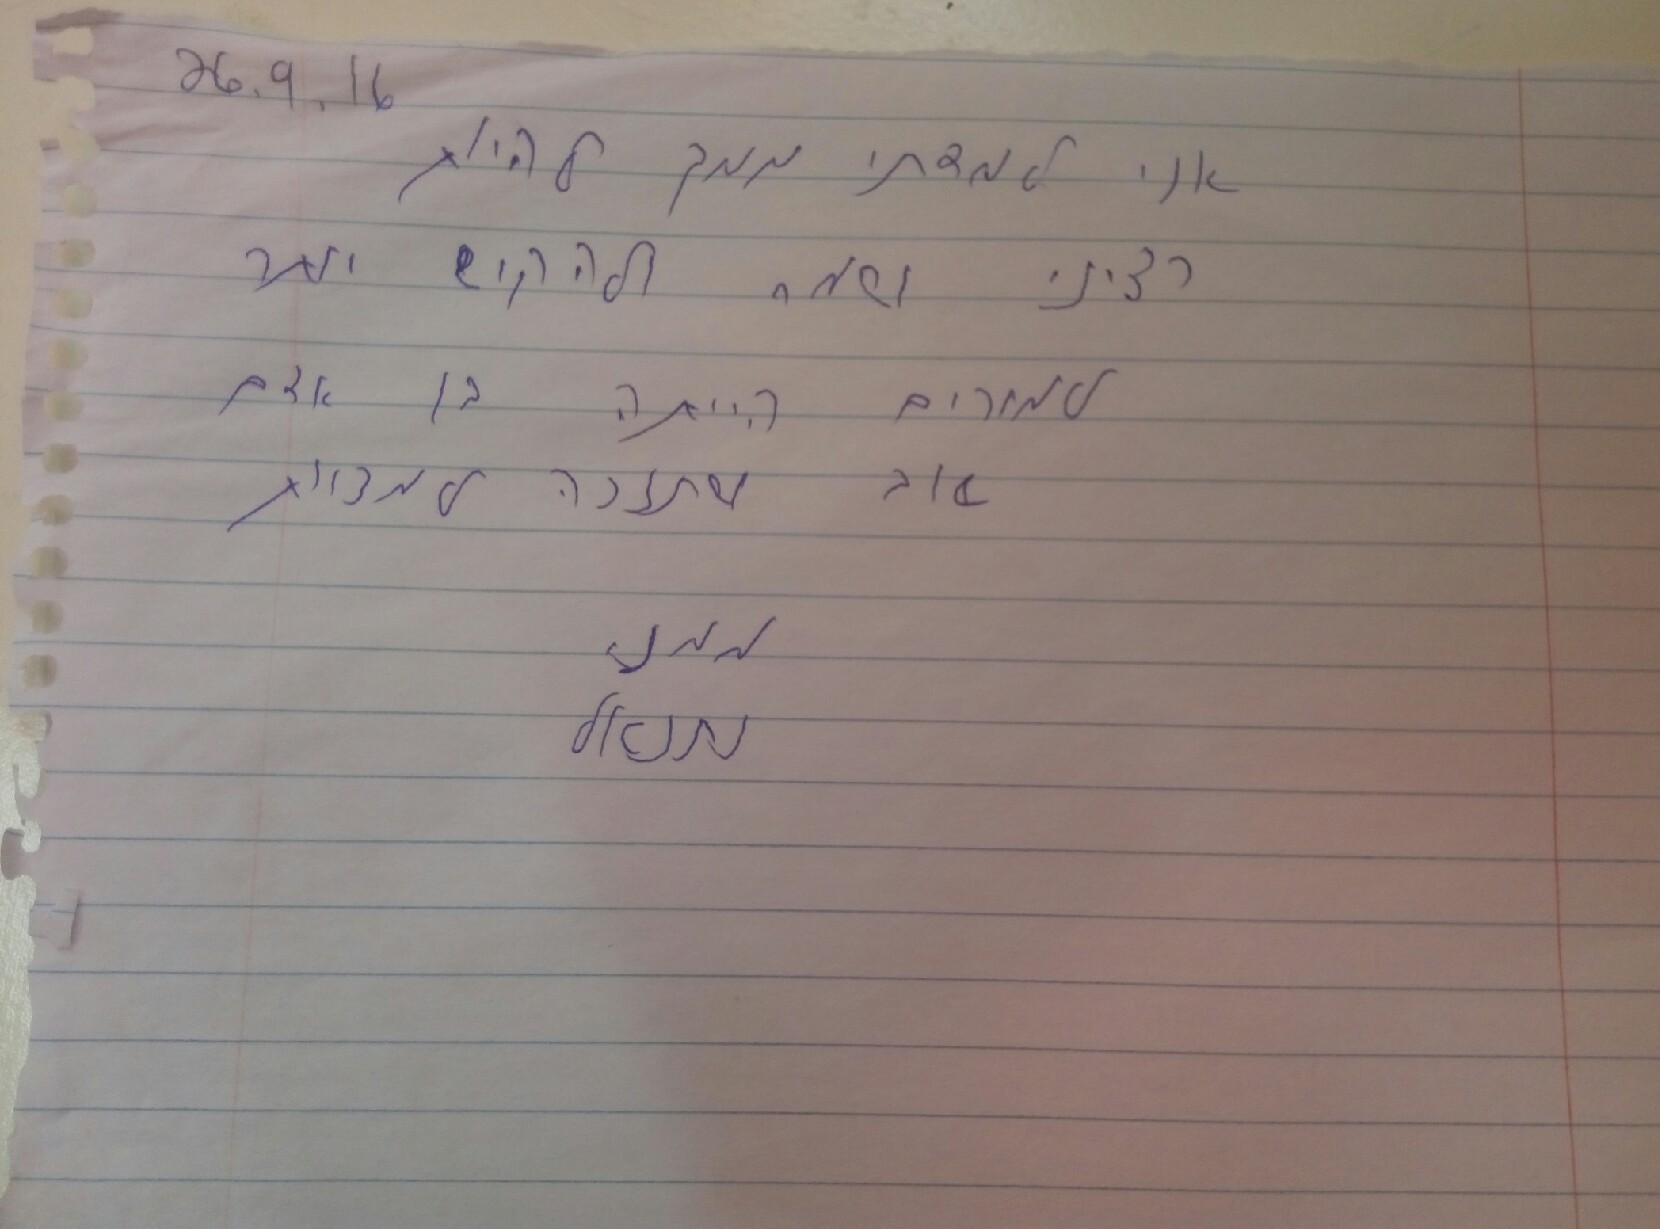 26.9.16
אני למדתי ממך להיות
רציני ושמח ולהקיש יותר
למורים הייתה בן אדם
טוב שתזכה למצוות
ממני
נתנאל